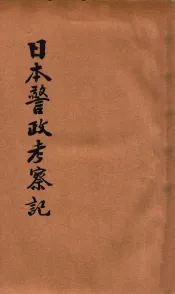 日本警政考察記